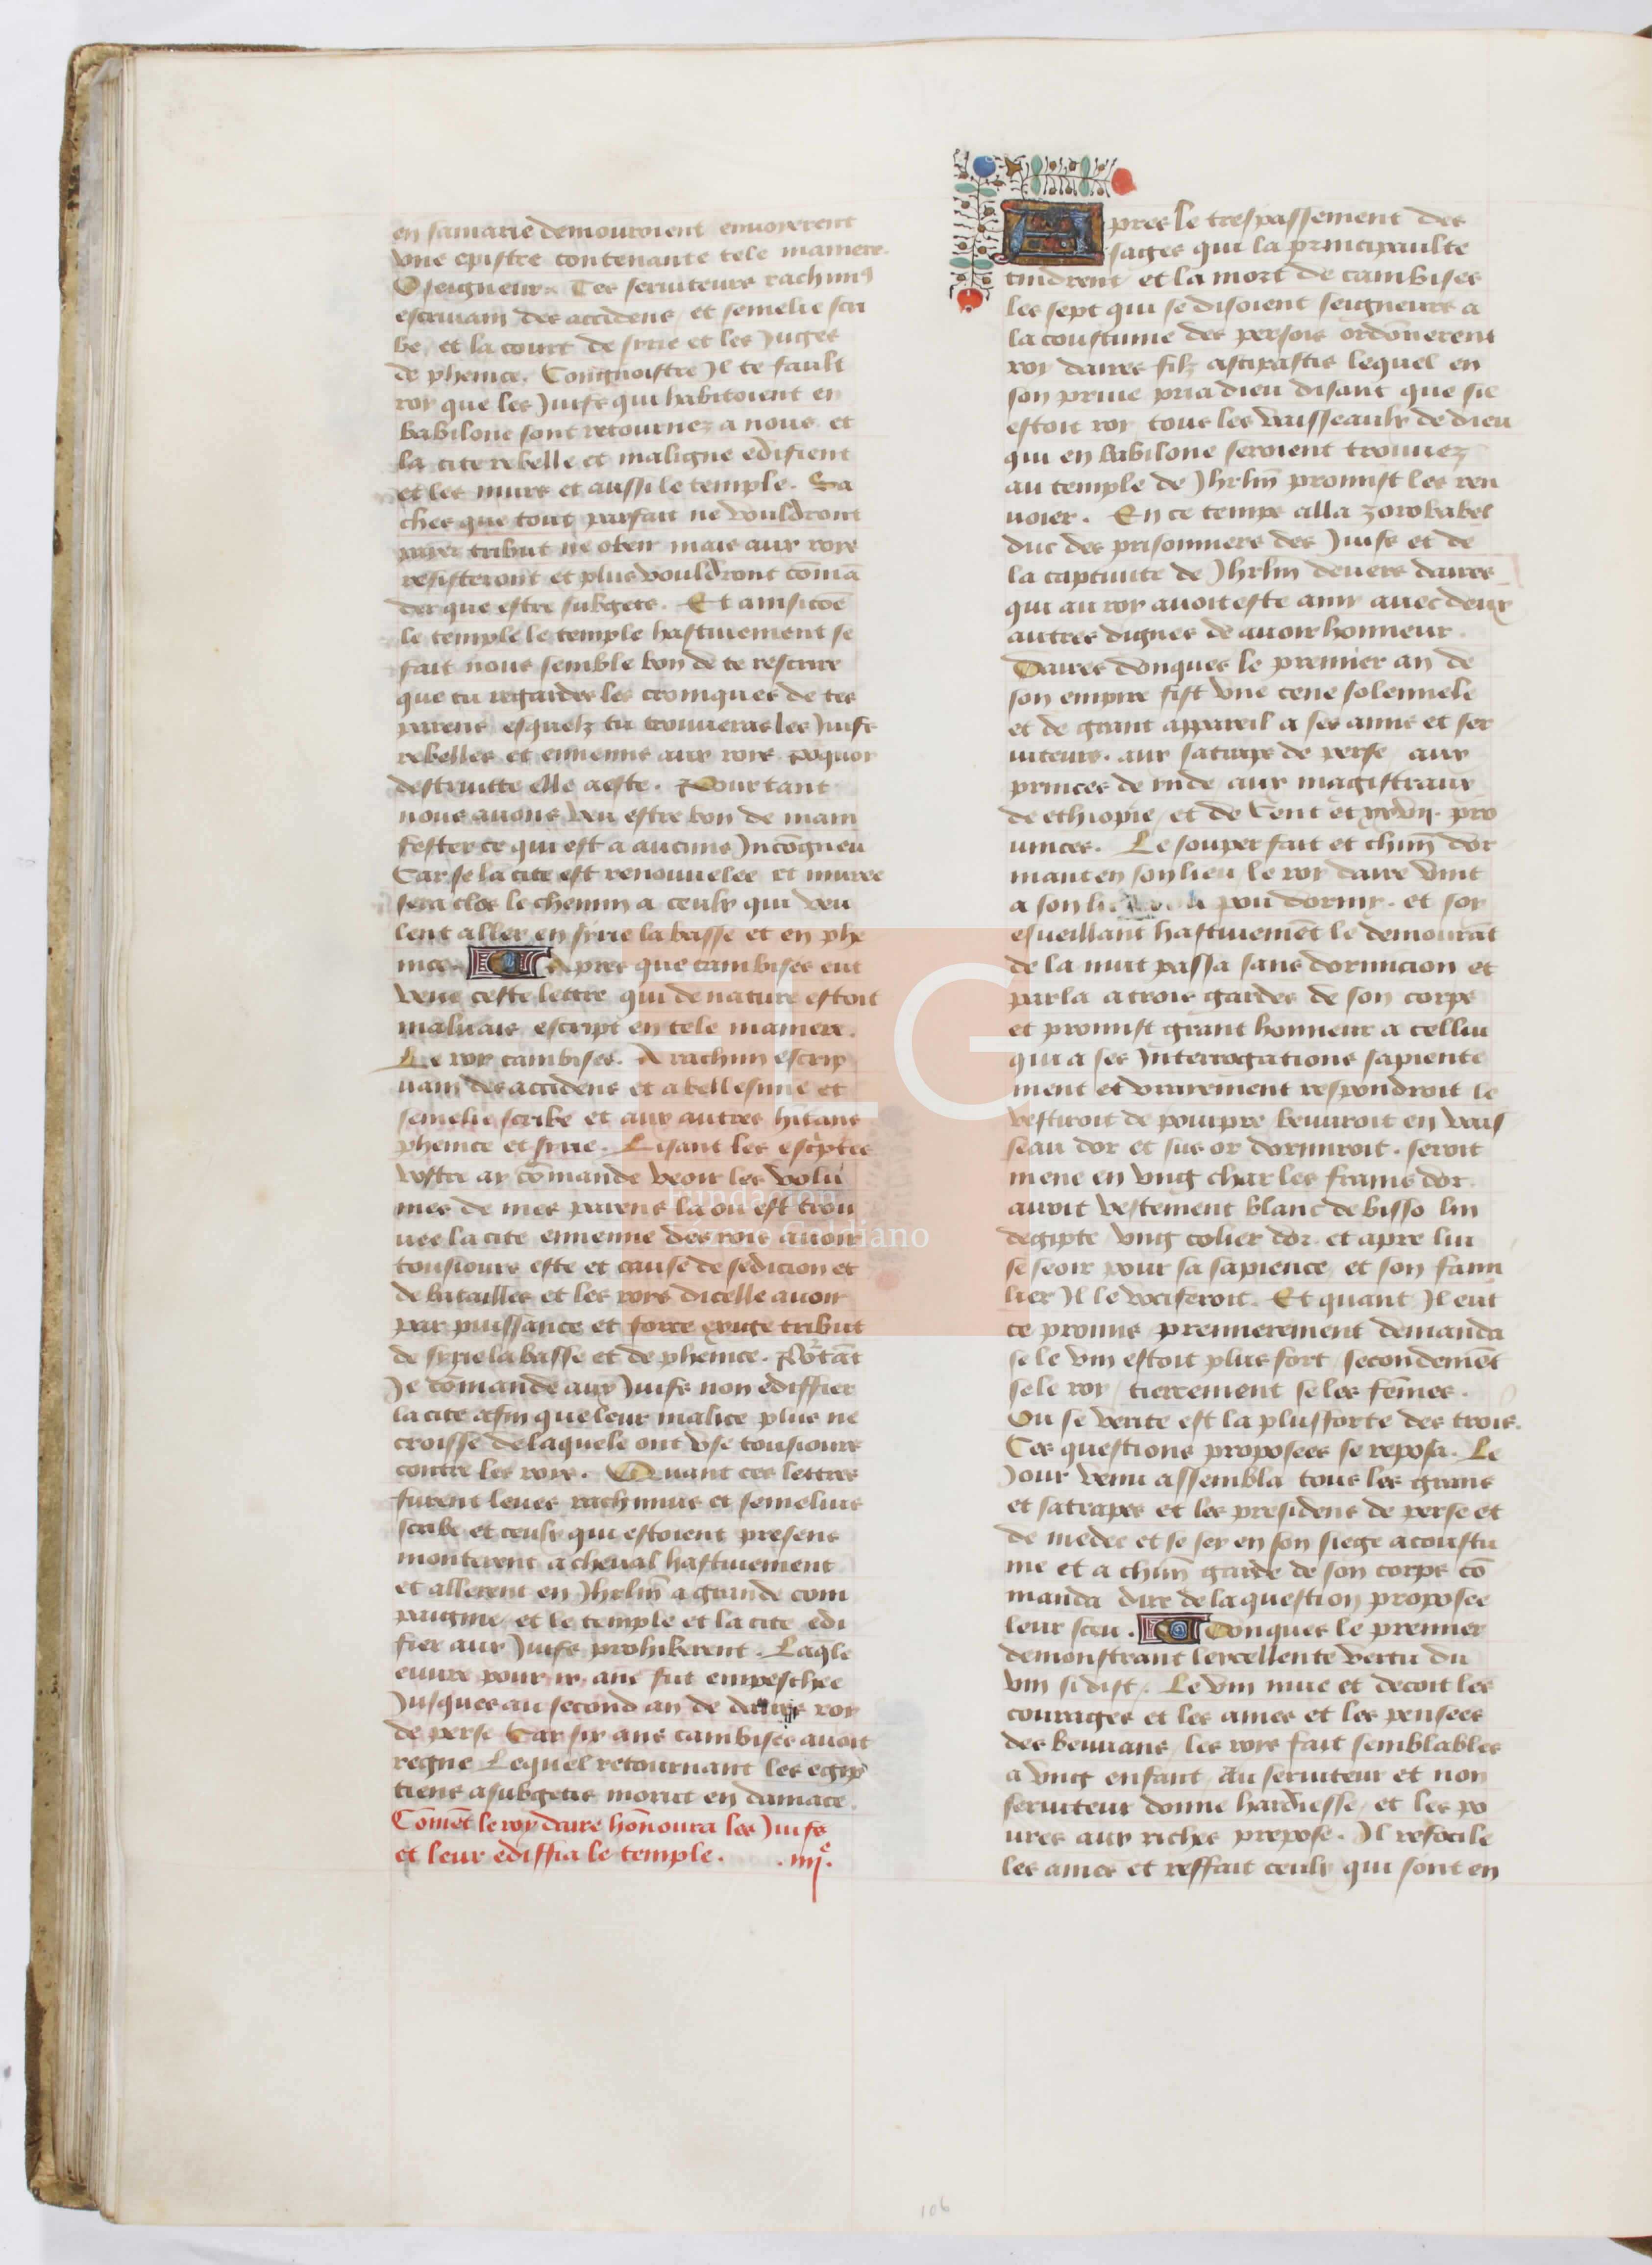 en samarie demouroient enuoyerent
vne epistre contenante tele maniere.
O seigneur. Tes seruiteurs rachimus
escriuain des accidens / et semelie scri
be, et la court de syrie et les Juges
de phenice. Congnoistre Jl te fault
roy que les Juifs qui habitoient en
babilone sont retournez a nous et
la cite rebelle et maligne edifient
et les murs et aussi le temple. Sa
ches que tout parfait ne vouldront
paier tribut ne obeir mais aux roys
resisteront et plus vouldront cōmā
der que estre subgets. Et ainsi cōe
le temple le temple hastiuement se
fait nous semble bon de te rescrire
que tu regardes les croniques de tes
parens esquelz tu trouueras les Juifs
rebelles et ennemis aux roys poquoy
destruitte elle a este. Pour tant
nous auons veu estre bon de mani
fester ce qui est a aucuns Jncōgneu
Car se la cite est renouuelee et muree
sera clos le chemin a ceulx qui veu
lent aller en syrie la basse et en phe
nice. Apres que cambises eut
veue ceste lettre qui de nature estoit
maluais escript en tele maniere.
Le roy cambises. A rachim escrip
uain des accidens et a bellesime et
semelie scribe et aux autres hitans
phenice et syrie. Lisant les escptes
vostre ay cōmande veoir les volu
mes de mes parens la ou est trou
uee la cite ennemie des rois auoir
tousiours este et cause de sedicion et
de batailles et les roys dicelle auoir
par puissance et force exige tribut
de syrie la basse et de phenice. Portāt
Je cōmande aux Juifs non ediffier
la cite afin que leur malice plus ne
croisse de laquele ont vse tousiours
contre les roys. Quant ces lettres
furent leues rachimus et semelius
scribe et ceulx qui estoient presens
monterent a cheual hastiuement
et allerent en Jhrlm̄ a grande com
paignie / et le temple et la cite edi
fier aux Juifs prohiberent. Laqle
euure pour ix ans fut empeschee
Jusques au second an de daires roy
de perse Car six ans cambises auoit
regne Lequel retournant les egip
tiens asubgetis morut en damace.
Cōmēt le roy daire hōnoura les Juifs
et leur ediffia le temple. .iiij.e
Apres le trespassement des
sages qui la principaulte
tindrent et la mort de cambises
les sept qui se disoient seigneurs a
la coustume des persois ordōnerent
roy daires filz astipastis lequel en
son priue pria dieu disant que sil
estoit roy tous les vaisseaulx de dieu
qui en babilone seroient trouuez
au temple de Jhrlm̄ promist les ren
uoier. En ce temps alla zorobabel
duc des prisonniers des Juifs et de
la captiuite de Jhrlm deuers daires
qui au roy auoit este amy auec deux
autres dignes de auoir honneur.
Daires donques le premier an de
son empire fist vne cene solennele
et de grant appareil a ses amis et ser
uiteurs. aux satraps de perse aux
princes de mde aux magistraux
de ethiopie / et de Cent et xxvij. pro
uinces. Le souper fait et chūn dor
mant en son lieu le roy daire vint
a son li pou dormy. et soy
esueillant hastiuemēt le demourāt
de la nuit passa sans dormicion et
parla a trois gardes de son corps
et promist grant honneur a cellui
qui a ses Jnterrogations sapiente
ment et vrayement respondroit le
vestiroit de pourpre beuuroit en vais
seau dor et sus or dormiroit. seroit
mene en vng char les frains dor.
auroit vestement blanc de bisso lin
degipte vng colier dor. et apre lui
se seoir pour sa sapience et son fami
lier Jl le vociferoit. Et quant Jl eut
ce promis premierement demanda
se le vin estoit plus fort secondemēt
se le roy / tiercement se les fēmes.
Ou se verite est la plus forte des trois.
Ces questions proposees se reposa. Le
Jour venu assembla tous les grans
et satrapes et les presidens de perse et
de medee et se sey en son siege acoustu
me et a chūn garde de son corps cō
manda dire de la question proposee
leur sceu. Donques le premier
demonstrant lexcellente vertu du
vin si dist. Le vin mue et decoit les
courages et les ames et les pensees
des beuuans / les roys fait semblables
a vng enfant Au seruiteur et non
seruiteur donne hardiesse / et les po
ures aux riches prepose. Jl refocile
les ames et reffait ceulx qui sont en
FLG
Fundación
Lázaro Galdiano
106